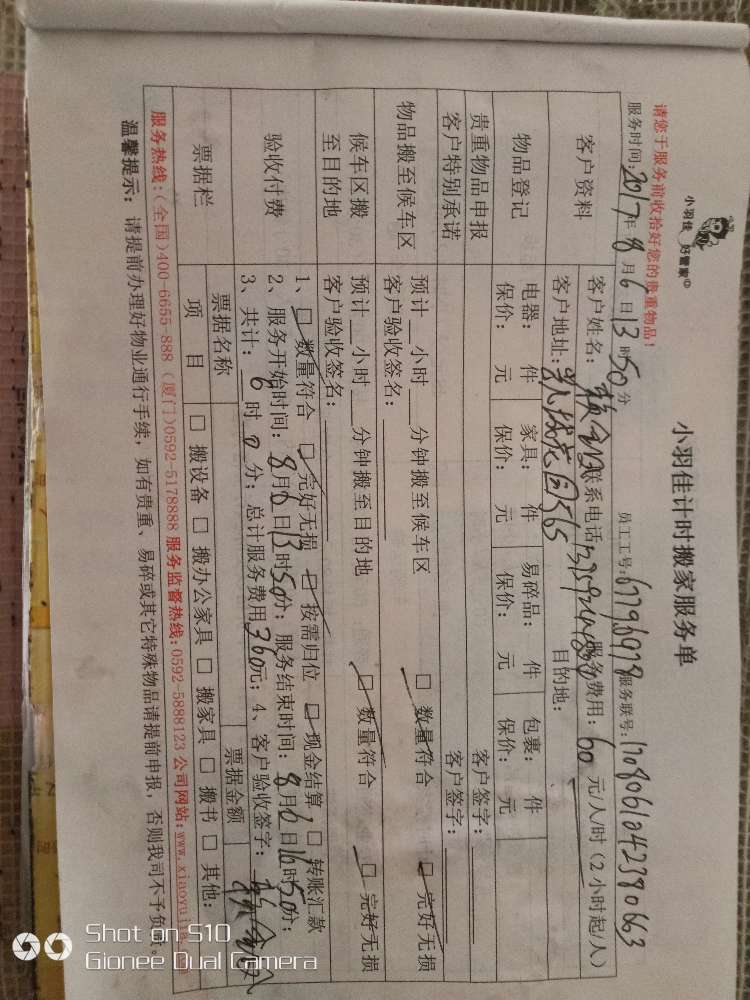 小羽佳 好管家
小羽佳计时搬家服务单
请您于服务前收拾好您的贵重物品!
服务时间:2017年8月6日13时50分 员工工号:67796978 服务联号:1708061042380663
客户资料
客户姓名: 联系电话 服务费用:60元/人/时(2小时起/人)
客户地址: 目的地:
物品登记
电器: 件 家具: 件 易碎品: 件 包裹: 件
保价: 元 保价: 元 保价: 元 保价: 元
贵重物品申报 客户签字:
客户特别承诺 客户签字:
物品搬至候车区
预计__小时__分钟搬至候车区 □数量符合 □完好无损
客户验收签名:
候车区搬至目的地
预计__小时__分钟搬至目的地 □数量符合 □完好无损
客户验收签名:
验收付费
1、□数量符合 □完好无损 □按需归位 □现金结算, □转账汇款
2、服务开始时间:8月6日13时50分; 服务结束时间:8月6日16时50分;
3、共计:6时0分; 总计服务费用360元; 4、客户验收签字:
票据栏
票据名称 票据金额
项 目 □搬设备 □搬办公家具 □搬家具 □搬书 □其他:
服务热线:(全国)400-6655-888 (厦门)0592-5178888 服务监督热线:0592-5888123 公司网站:www.xiaoyujia
温馨提示: 请提前办理好物业通行手续, 如有贵重、易碎或其它特殊物品请提前申报, 否则我司不予负
Shot on S10
Gionee Dual Camera